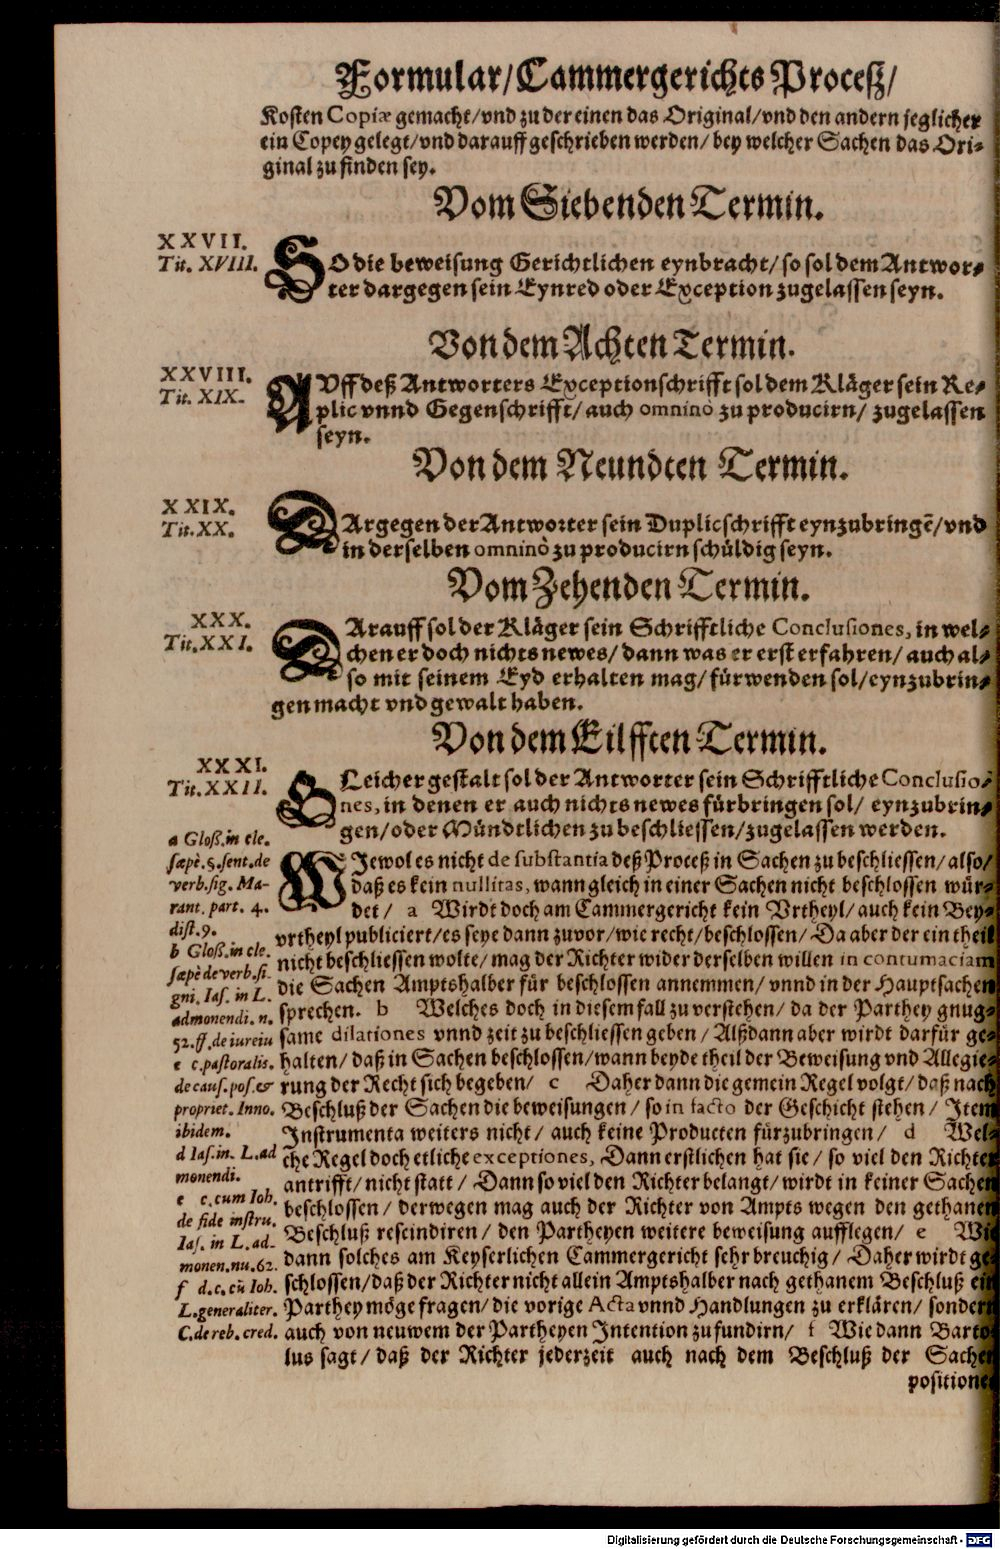 Formular/Cammergerichts Proceß/
Kosten Copiæ gemacht/vnd zu der einen das Original/vnd den andern jeglicher
ein Copey gelegt/vnd darauff geschrieben werden/bey welcher Sachen das Ori-
ginal zu finden sey.
Vom Siebenden Termin.
XXVII.
Tit. XVIII.
SO die beweisung Gerichtlichen eynbracht/so sol dem Antwor-
ter dargegen sein Eynred oder Exception zugelassen seyn.
Von dem Achten Termin.
XXVIII.
Tit. XIX.
AVff deß Antworters Exceptionschrifft sol dem Kläger sein Re-
plic vnnd Gegenschrifft/auch omninò zu producirn/ zugelassen
seyn.
Von dem Neundten Termin.
XXIX.
Tit. XX.
DArgegen der Antworter sein Duplicschrifft eynzubringẽ/vnd
in derselben omninò zu producirn schüldig seyn.
Vom Zehenden Termin.
XXX.
Tit. XXI.
DArauff sol der Kläger sein Schrifftliche Conclusiones, in wel-
chen er doch nichts newes/dann was er erst erfahren/auch al-
so mit seinem Eyd erhalten mag/fürwenden sol/eynzubrin-
gen macht vnd gewalt haben.
Von dem Eilfften Termin.
XXXI.
Tit. XXII.
GLeicher gestalt sol der Antworter sein Schrifftliche Conclusio-
nes, in denen er auch nichts newes fürbringen sol/ eynzubrin-
gen/oder Mündtlichen zu beschliessen/zugelassen werden.
WJewol es nicht de substantia deß Proceß in Sachen zu beschliessen/also/
daß es kein nullitas, wann gleich in einer Sachen nicht beschlossen wür-
det/ a Wirdt doch am Cammergericht kein Vrtheyl/auch kein Bey-
vrtheyl publiciert/es seye dann zuvor/wie recht/beschlossen/Da aber der ein theil
nicht beschliessen wolte/mag der Richter wider derselben willen in contumaciam
die Sachen Amptshalber für beschlossen annemmen/vnnd in der Hauptsachen
sprechen. b Welches doch in diesem fall zu verstehen/da der Parthey gnug-
same dilationes vnnd zeit zu beschliessen geben/Alßdann aber wirdt darfür ge-
halten/daß in Sachen beschlossen/wann beyde theil der Beweisung vnd Allegie-
rung der Recht sich begeben/ c Daher dann die gemein Regel volgt/daß nach
Beschluß der Sachen die beweisungen/so in facto der Geschicht stehen/Jtem
Instrumenta weiters nicht/auch keine Producten fürzubringen/ d Wel-
che Regel doch etliche exceptiones, Dann erstlichen hat sie/so viel den Richter
antrifft/nicht statt/Dann so viel den Richter belangt/wirdt in keiner Sachen
beschlossen/derwegen mag auch der Richter von Ampts wegen den gethanen
Beschluß rescindiren/den Partheyen weitere beweisung aufflegen/ e Wie
dann solches am Keyserlichen Cammergericht sehr breuchig/Daher wirdt ge-
schlossen/daß der Richter nicht allein Amptshalber nach gethanem Beschluß ein
Parthey möge fragen/die vorige Acta vnnd Handlungen zu erklären/sondern
auch von neuwem der Partheyen Intention zu fundirn/ f Wie dann Barto-
lus sagt/daß der Richter jederzeit auch nach dem Beschluß der Sachen
positiones
a Gloß. in cle.
sæpè. 5. sent. de
verb. sig. Ma-
rant. part. 4.
dist. 9.
b Gloß. in cle.
sæpè de verb. si-
gni. Ias. in L.
admonendi. n.
52. ff. de iureiu
c c. pastoralis.
de caus. pos. &
propriet. Inno.
ibidem.
d Ias. in. L. ad
monendi.
e c. cum Ioh.
de fide instru.
Ias. in L. ad-
monen. nu. 62.
f d. c. cũ Ioh.
L. generaliter.
C. de reb. cred.
Digitalisierung gefördert durch die Deutsche Forschungsgemeinschaft - DFG